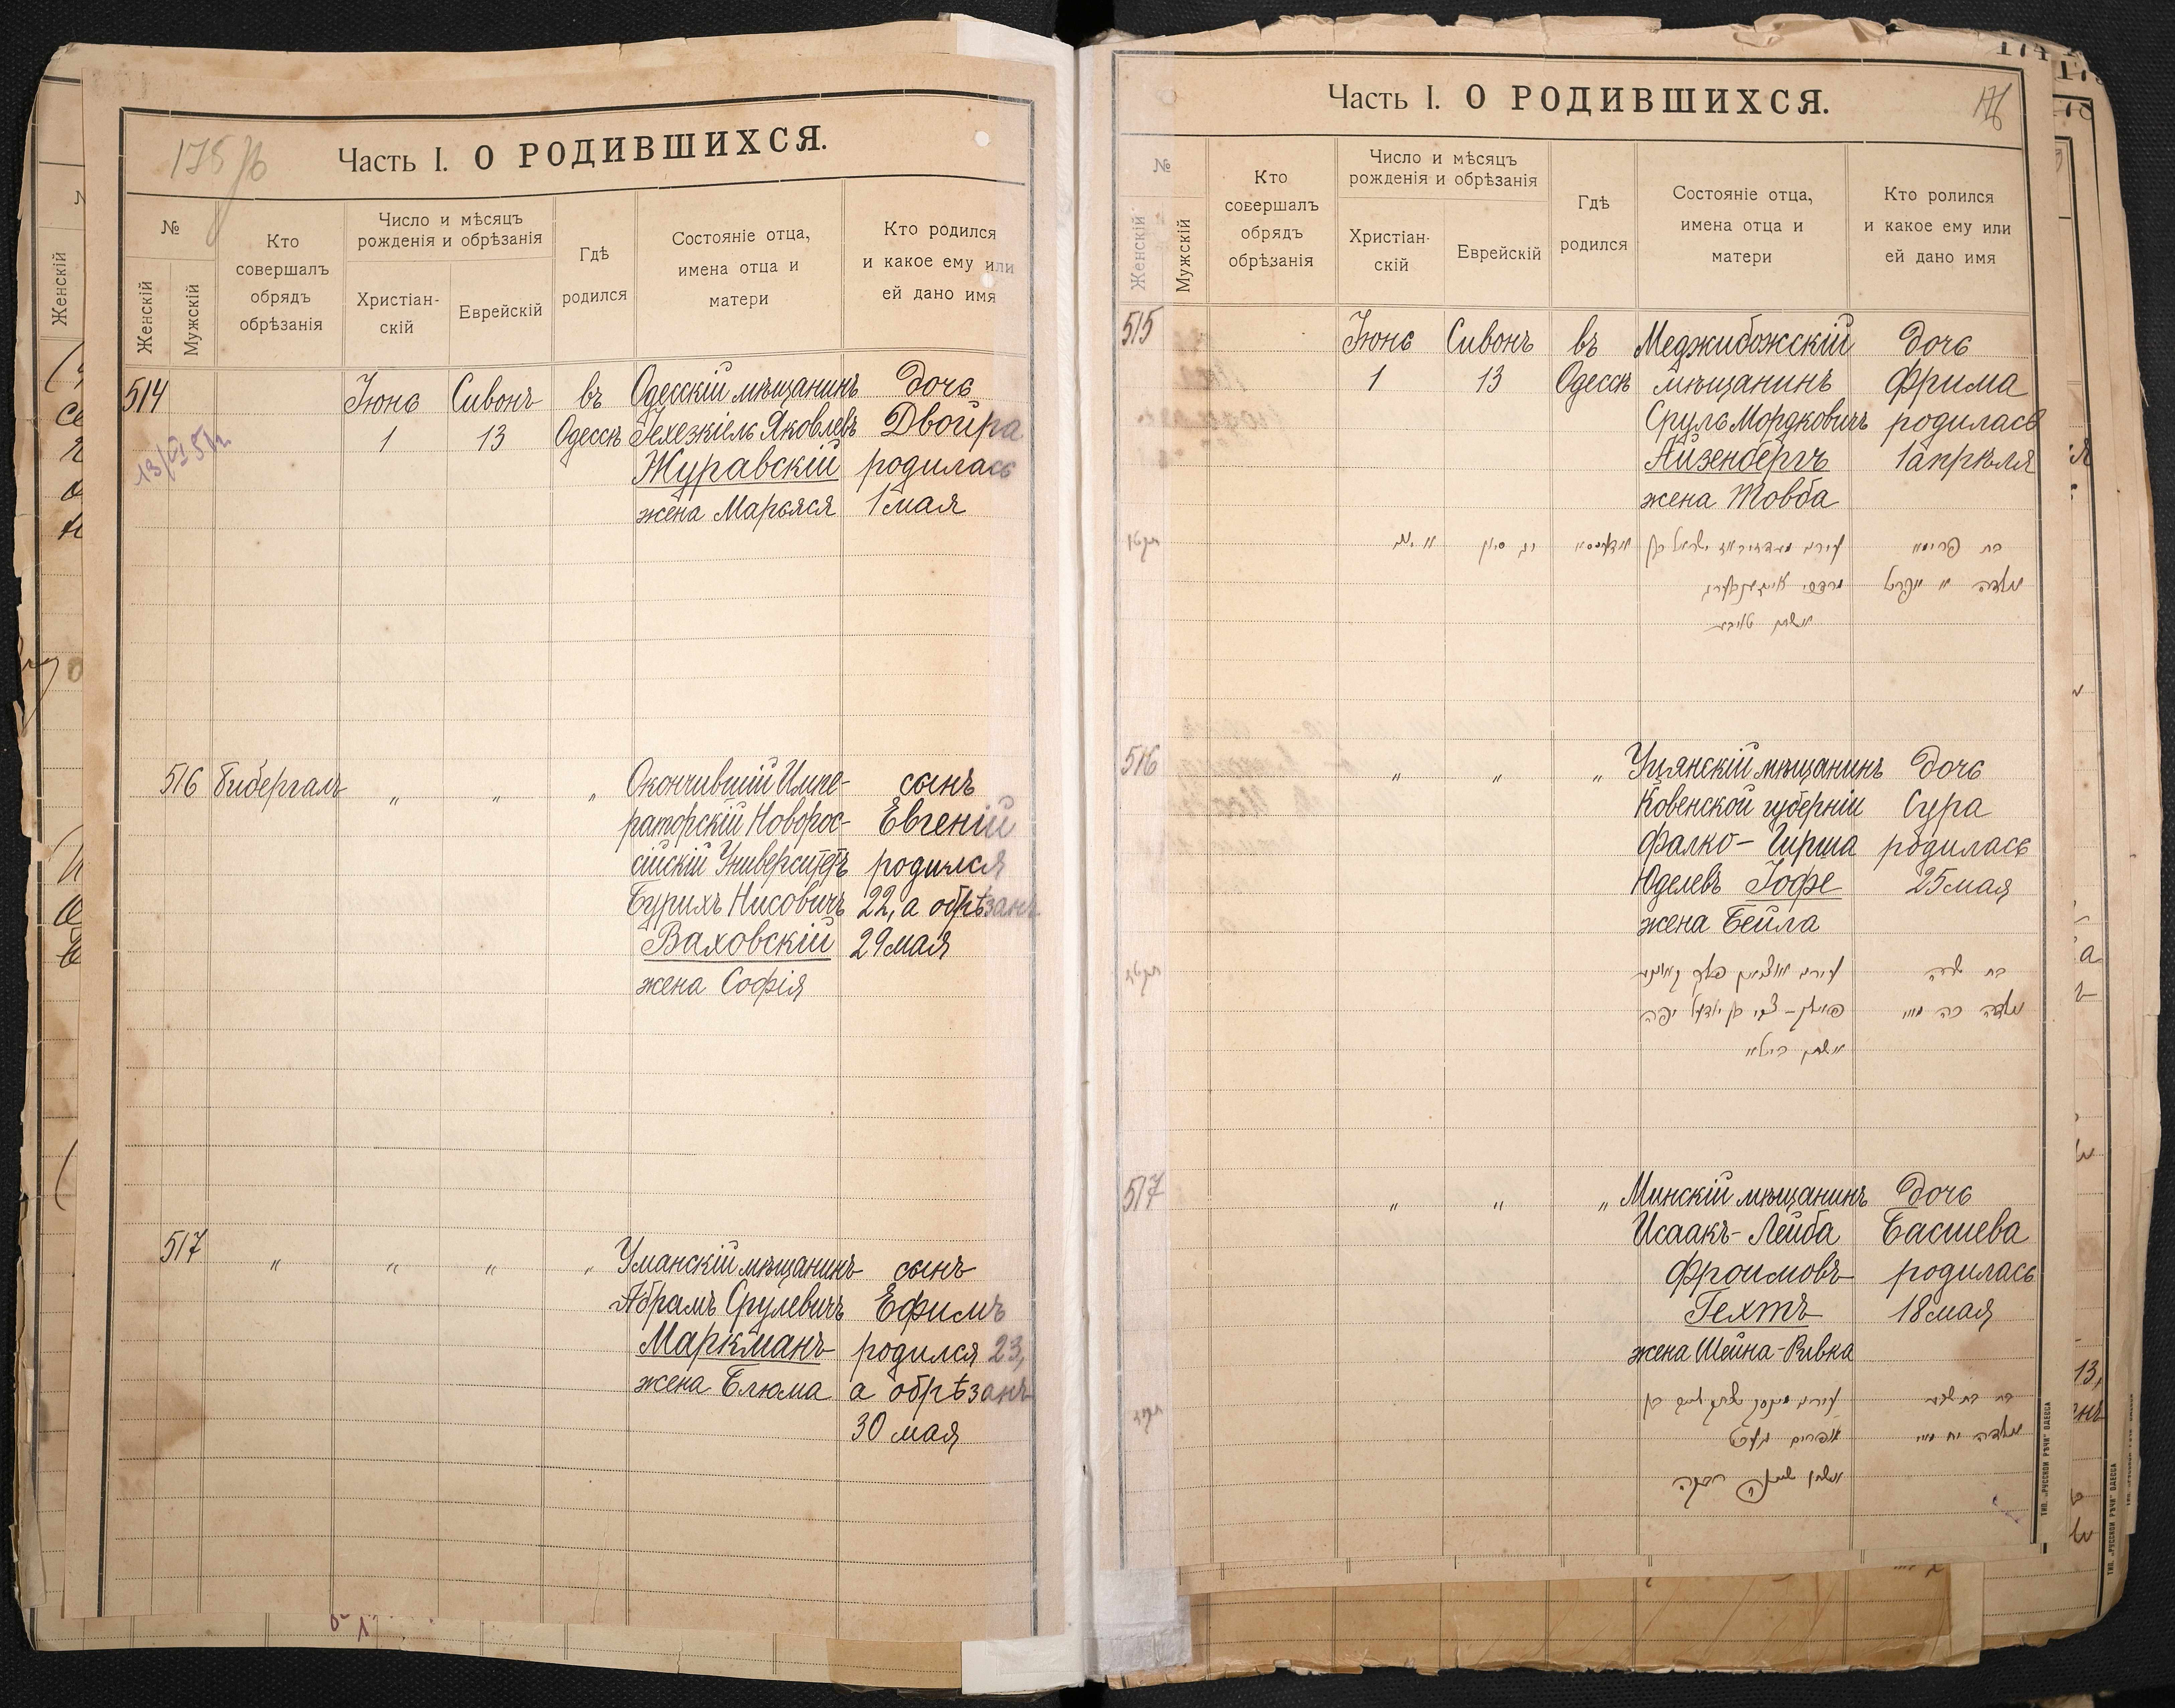 175 об
Часть I. О РОДИВШИХСЯ.
№
Женскій
Мужскій
Кто
совершалъ
обрядъ
обрѣзанія
Число и мѣсяцъ
рожденія и обрѣзанія
Христіан-
скій
Еврейскій
Гдѣ
родился
Состояніе отца,
имена отца и
матери
Кто родился
и какое ему или
ей дано имя
514
Іюнь
1
Сивонъ
13
въ
Одессѣ
Одесскій мѣщанинъ
Іехезкіель Яковлевъ
Журавскій
жена Марьяся
дочь
Двойра
родилась
1 мая
516
Бибергалъ
„
„
„
Окончившій Импе-
раторскій Новорос-
сійскій Университетъ
Бурихъ Нисовичъ
Ваховскій
жена Софія
сынъ
Евгеній
родился
22, а обрѣзанъ
29 мая
517
„
„
„
„
Уманскій мѣщанинъ
Абрамъ Срулевичъ
Маркманъ
жена Блюма
сынъ
Ефимъ
родился 23,
а обрѣзанъ
30 мая
Часть I. О РОДИВШИХСЯ.
176
№
Женскій
Мужскій
Кто
совершалъ
обрядъ
обрѣзанія
Число и мѣсяцъ
рожденія и обрѣзанія
Христіан-
скій
Еврейскій
Гдѣ
родился
Состояніе отца,
имена отца и
матери
Кто ролился
и какое ему или
ей дано имя
515
Іюнь
1
Сивонъ
13
въ
Одессѣ
Меджибожскій
мѣщанинъ
Сруль Мордковичъ
Айзенбергъ
жена Товба
дочь
Фрима
родилась
1 апрѣля
יג סיון
אדעסא
בת פרימא
נולדה א אפריל
516
„
„
„
Уцянскій мѣщанинъ
Ковенской губерніи
Фалко-Гирша
Юделевъ Іофе
жена Бейла
дочь
Сура
родилась
25 мая
צבי בן יודל יפה
אשתו ביילא
בת שרה
נולדה כה מאי
517
„
„
„
Минскій мѣщанинъ
Исаакъ-Лейба
Фроимовъ
Гехтъ
жена Шейна-Ривка
дочь
Басшева
родилась
18 мая
אפרים געכט
רבקה
בת בת שבע
נולדה יח מאי
ТИП. „РУССКОЙ РѢЧИ" ОДЕССА
ТИП. „РУССКОЙ РѢЧИ" ОДЕССА